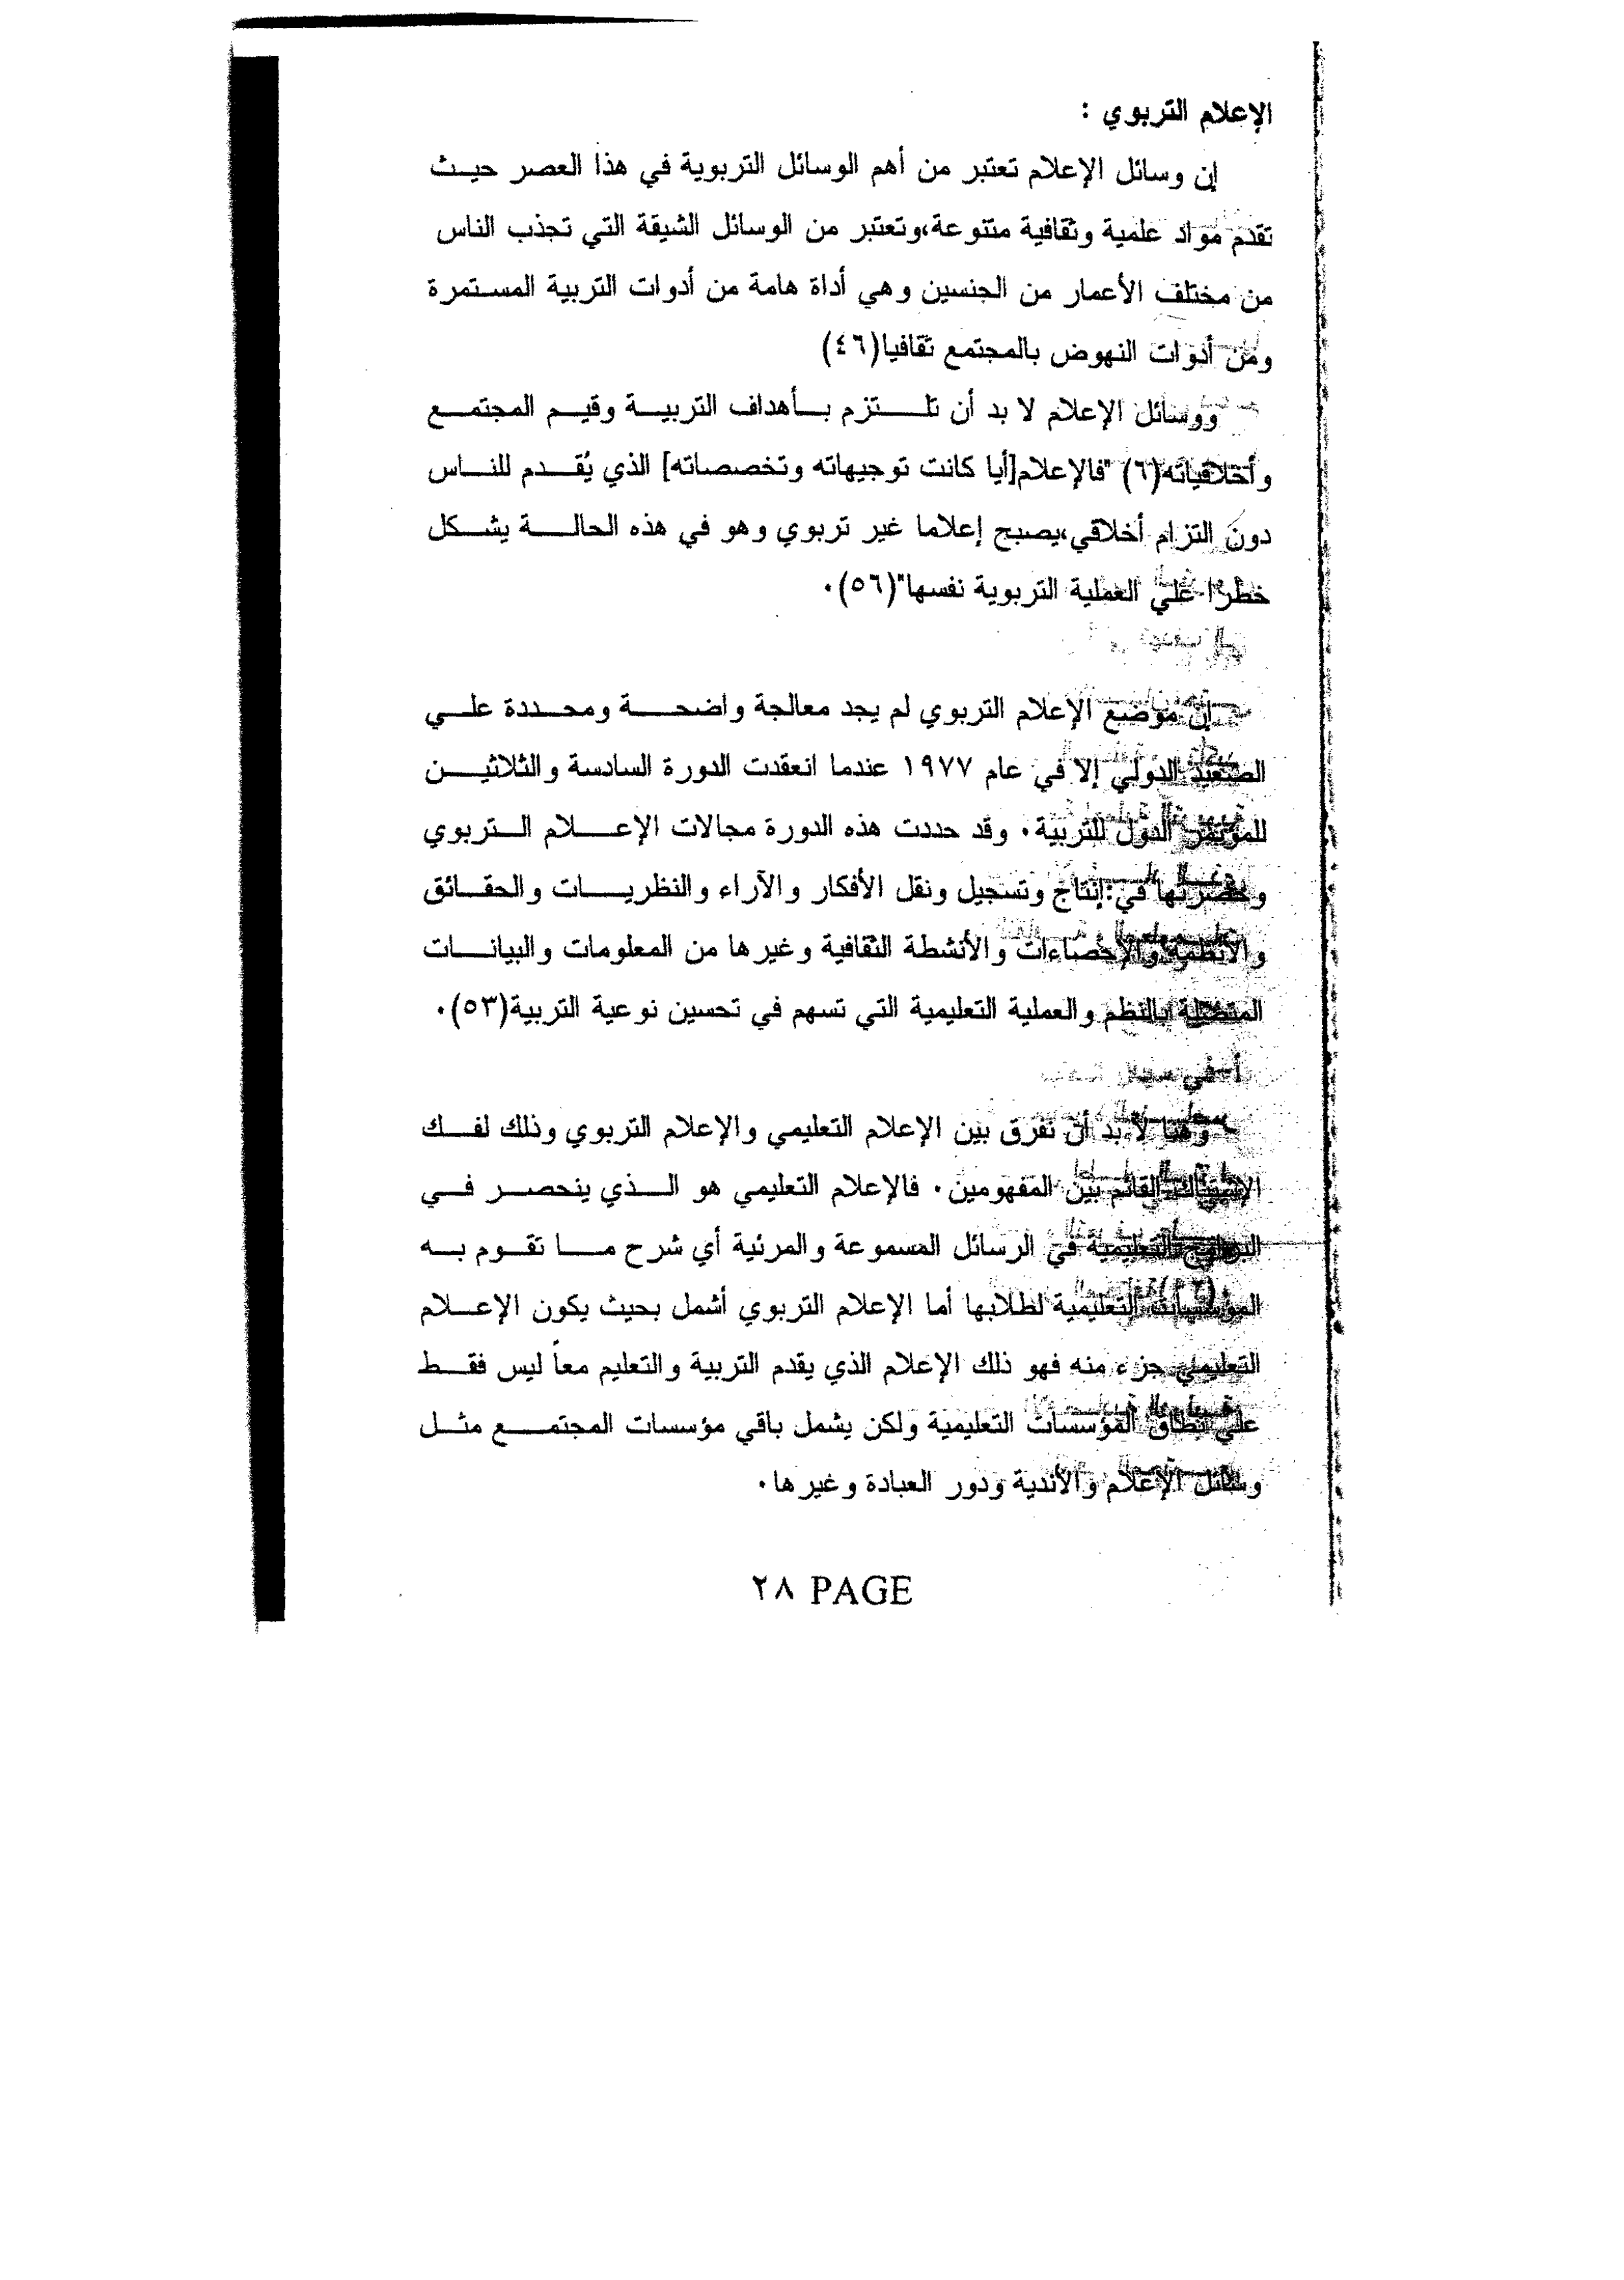 الإعلام التربوي :
إن وسائل الإعلام تعتبر من أهم الوسائل التربوية في هذا العصر حيث
تقدم مواد علمية وثقافية متنوعة،وتعتبر من الوسائل الشيقة التي تجذب الناس
من مختلف الأعمار من الجنسين وهي أداة هامة من أدوات التربية المستمرة
ومن أدوات النهوض بالمجتمع ثقافيا(٤٦)
ووسائل الإعلام لا بد أن تلتزم بأهداف التربية وقيم المجتمع
وأخلاقياته(٦) "فالإعلام[أيا كانت توجيهاته وتخصصاته] الذي يُقدم للناس
دون التزام أخلاقي،يصبح إعلاما غير تربوي وهو في هذه الحالة يشكل
خطرا علي العملية التربوية نفسها"(٥٦).
إن موضع الإعلام التربوي لم يجد معالجة واضحة ومحددة علي
الصعيد الدولي إلا في عام ١٩٧٧ عندما انعقدت الدورة السادسة والثلاثين
للمؤتمر الدول للتربية. وقد حددت هذه الدورة مجالات الإعلام التربوي
وحصرتها في:إنتاج وتسجيل ونقل الأفكار والآراء والنظريات والحقائق
والأنظمة والإحصاءات والأنشطة الثقافية وغيرها من المعلومات والبيانات
المتصلة بالنظم والعملية التعليمية التي تسهم في تحسين نوعية التربية(٥٣).
وهنا لا بد أن نفرق بين الإعلام التعليمي والإعلام التربوي وذلك لفك
القائم بين المفهومين. فالإعلام التعليمي هو الذي ينحصر في
البرامج التعليمية في الرسائل المسموعة والمرئية أي شرح ما تقوم به
المؤسسات التعليمية لطلابها أما الإعلام التربوي أشمل بحيث يكون الإعلام
التعليمي جزء منه فهو ذلك الإعلام الذي يقدم التربية والتعليم معاً ليس فقط
علي نطاق المؤسسات التعليمية ولكن يشمل باقي مؤسسات المجتمع مثل
وسائل الإعلام والأندية ودور العبادة وغيرها.
٢٨ PAGE